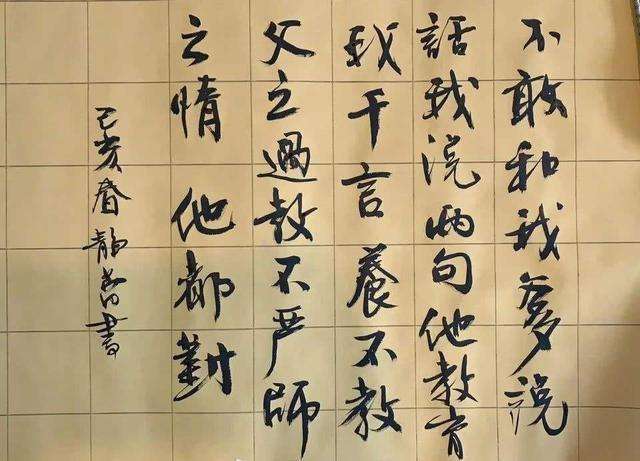 不敢和我爹説
話我説兩句他教育
我千言養不教
父之過教不严師
之惰他都對
己亥春靜香書